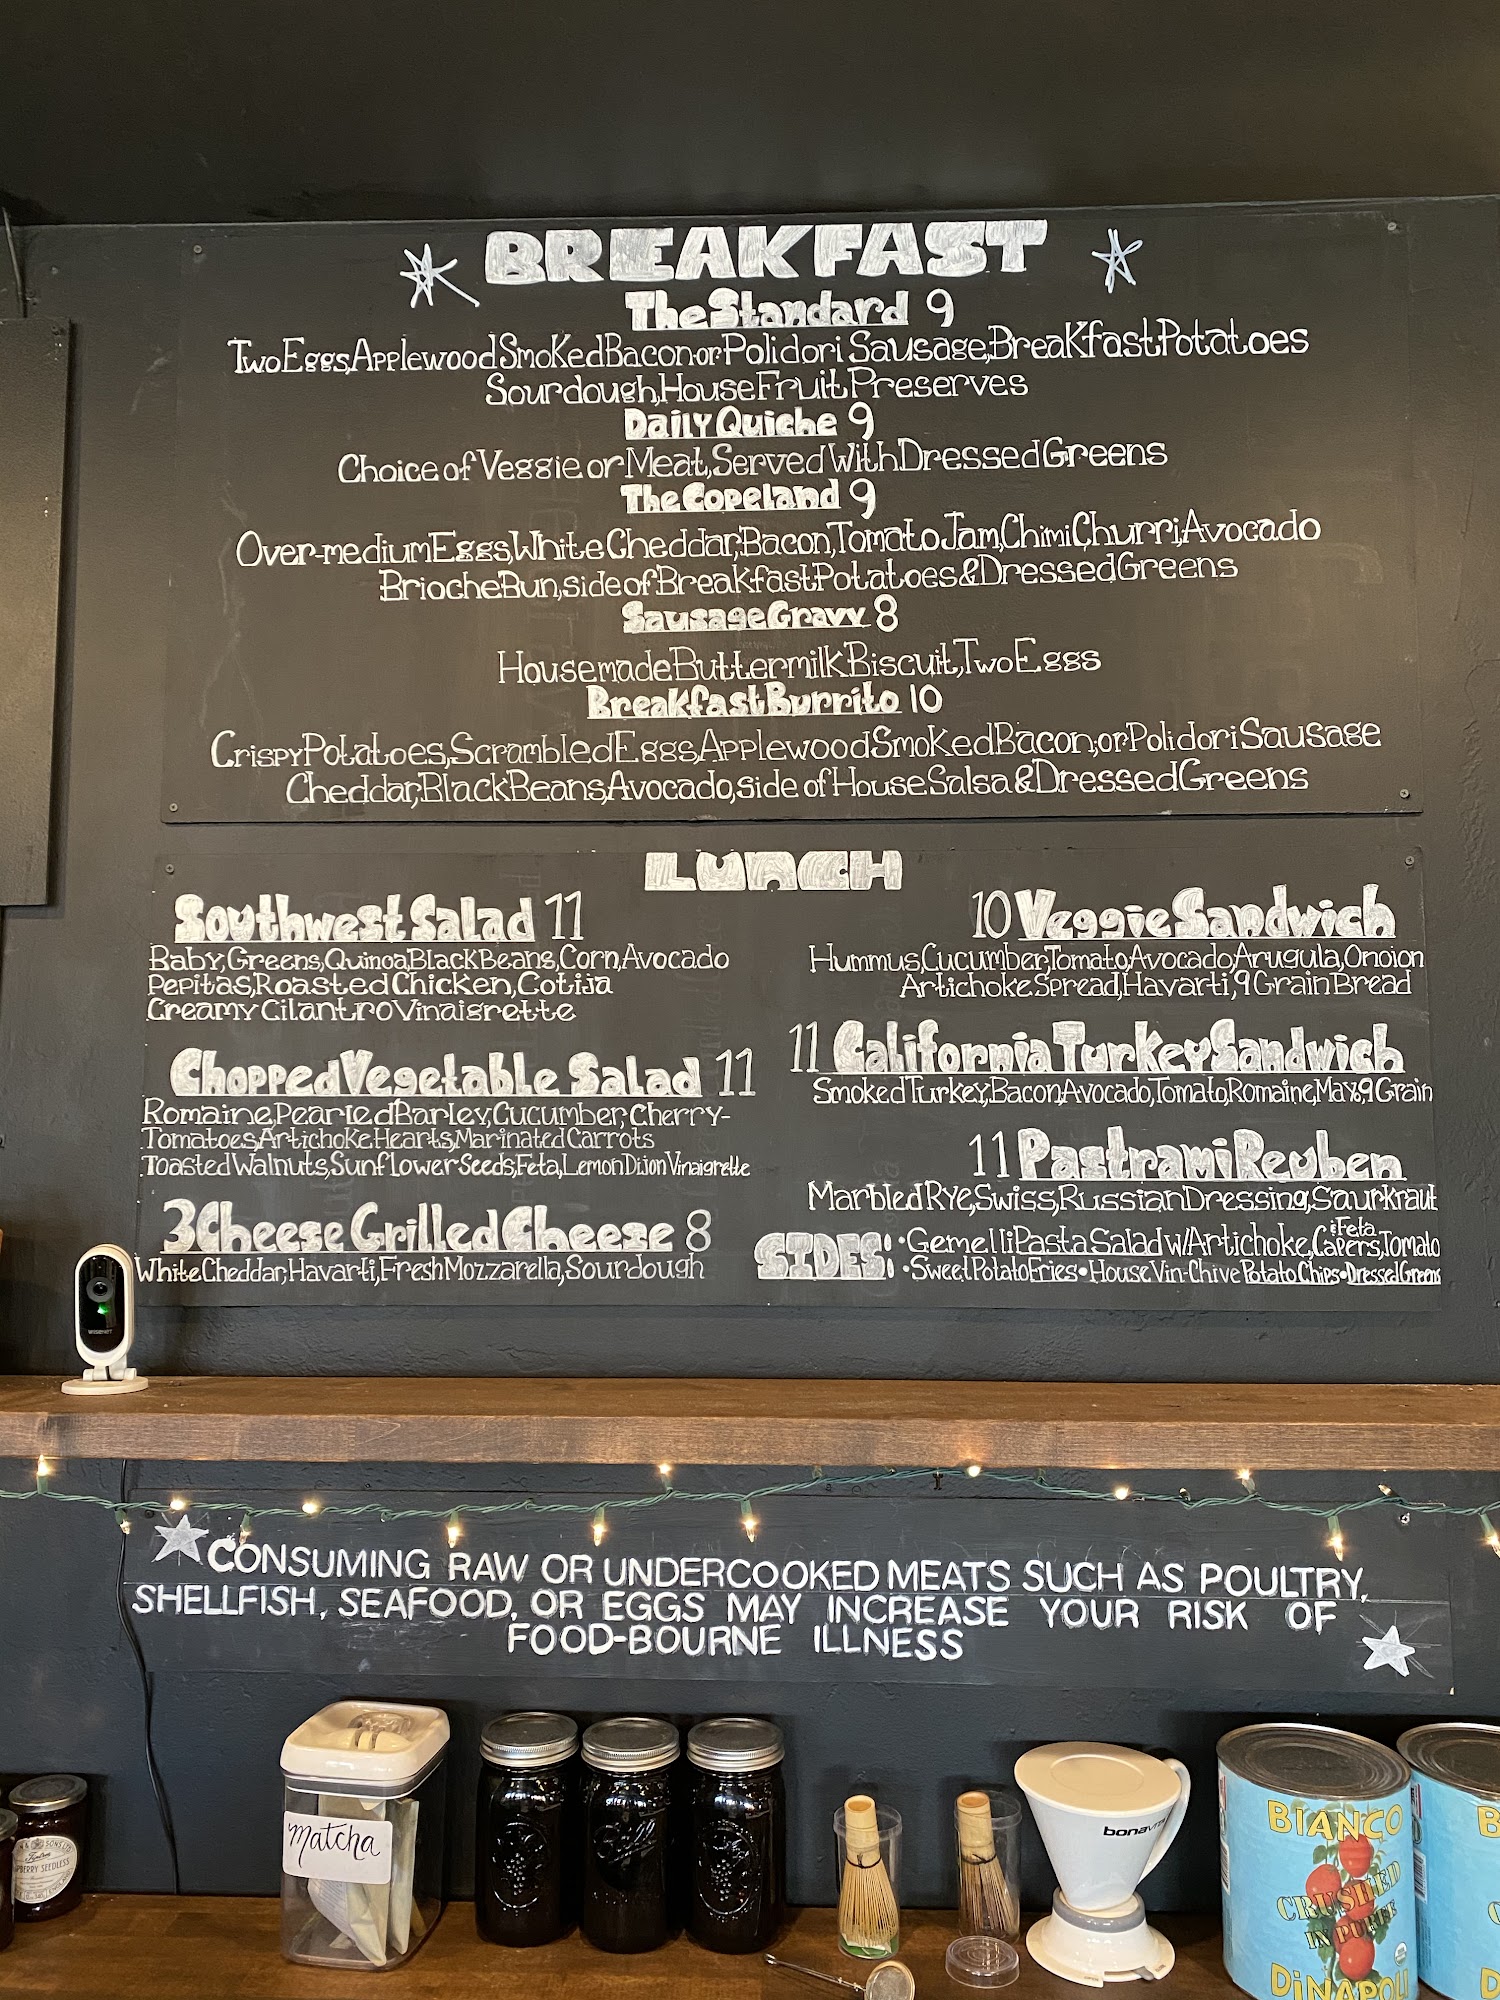 BREAKFAST
The Standard 9
Two Eggs, Applewood Smoked Bacon or Polidori Sausage, Breakfast Potatoes
Sourdough, House Fruit Preserves
Daily Quiche 9
Choice of Veggie or Meat, Served With Dressed Greens
The Copeland 9
Over-medium Eggs, White Cheddar, Bacon, Tomato Jam, Chimi Churri, Avocado
Brioche Bun, side of Breakfast Potatoes & Dressed Greens
Sausage Gravy 8
Housemade Buttermilk Biscuit, Two Eggs
Breakfast Burrito 10
Crispy Potatoes, Scrambled Eggs, Applewood Smoked Bacon, or Polidori Sausage
Cheddar, Black Beans, Avocado, side of House Salsa & Dressed Greens
LUNCH
Southwest Salad 11
Baby, Greens, Quinoa, Black Beans, Corn, Avocado
Pepitas, Roasted Chicken, Cotija
Creamy Cilantro Vinaigrette
Chopped Vegetable Salad 11
Romaine, Pearled Barley, Cucumber, Cherry-
Tomatoes, Artichoke Hearts, Marinated Carrots
Toasted Walnuts, Sunflower Seeds, Feta, Lemon Dijon Vinaigrette
3 Cheese Grilled Cheese 8
White Cheddar, Havarti, Fresh Mozzarella, Sourdough
10 Veggie Sandwich
Hummus, Cucumber, Tomato, Avocado, Arugula, Onoion
Artichoke Spread, Havarti, 9 Grain Bread
11 California Turkey Sandwich
Smoked Turkey, Bacon, Avocado, Tomato, Romaine, Mayo, 9 Grain
11 Pastrami Reuben
Marbled Rye, Swiss, Russian Dressing, Saurkraut
SIDES: • Gemelli Pasta Salad w/ Artichoke, Capers, Tomato & Feta
• Sweet Potato Fries • House Vin-Chive Potato Chips • Dressed Greens
WISENET
CONSUMING RAW OR UNDERCOOKED MEATS SUCH AS POULTRY,
SHELLFISH, SEAFOOD, OR EGGS MAY INCREASE YOUR RISK OF
FOOD-BOURNE ILLNESS
Matcha
Ball
bonavita
BIANCO
CRUSHED
IN PUREE
DiNAPOLI
SEEDLESS